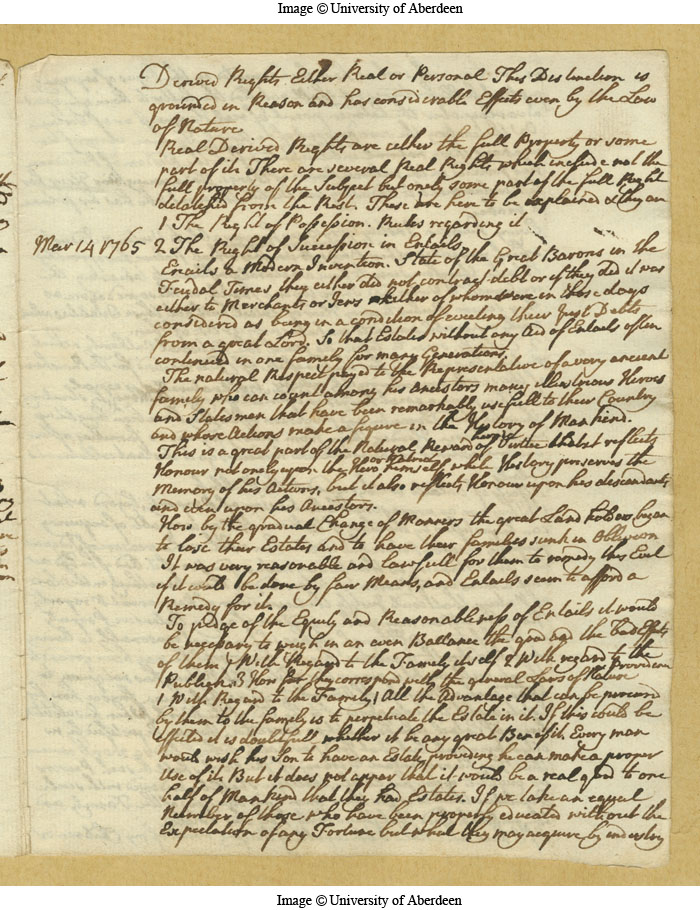 Image © University of Aberdeen
Derived Rights Either Real or Personal This Distinction is
grounded in Reason and has considerable Effects even by the Law
of Nature
Real Derived Rights are either the full Property or some
part of it. There are several Real Rights which include not the
full property of the Subject but onely some part of the full Right
detatched from the Rest. These are here to be explained & they are
1 The Right of Possession. Rules regarding it
Mar 14 1765 2 The Right of Succession in Entails
Entails a Modern Invention. State of the Great Barons in the
Feudal Times they either did not contract debt or if they did it was
either to Merchants or Jews neither of whom were in those days
considered as being in a condition of exacting their just Debts
from a great Lord. So that Estates without any Aid of Entails often
continued in one family for many Generations.
The natural Respect payd to the Representative of a very ancient
family who can count among his Ancestors many illustrious Heroes
and Statesman that have been remarkably usefull to their Country
and whose Actions make a figure in the History of Mankind.
This is a great part of the Natural Reward of Virtue that it reflects
Honour not onely upon the Hero or Patriot himself while History preserves the
Memory of his Actions, but it also reflects Honour upon his descendants
and even upon his Ancestors.
How by the gradual Change of Manners the great Land holders began
to lose their Estates and to have their families sunk in Oblivion
It was very reasonable and lawfull for them to remedy this Evil
if it could be done by fair Means, and Entails seem to afford a
Remedy for it.
To judge of the Equity and Reasonableness of Entails it would
be necessary to weigh in an even Ballance the good and the bad Effects
of them 1 With Regard to the Family it self 2 With regard to the
Publick. 3 How far they correspond with the general Laws of Nature Providence
1 With Regard to the Family, All the Advantage that can be procured
by them to the family is to perpetuate the Estate in it. If this could be
effected it is doubtfull whether it be any great Benefit. Every man
would wish his Son to have an Estate, providing he can make a proper
Use of it. But it does not appear that it would be a real good to one
half of Mankind that they had Estates. If we take an equal
Number of those who have been properly educated without the
Expectation of any Fortune but what they may acquire by industry
Image © University of Aberdeen